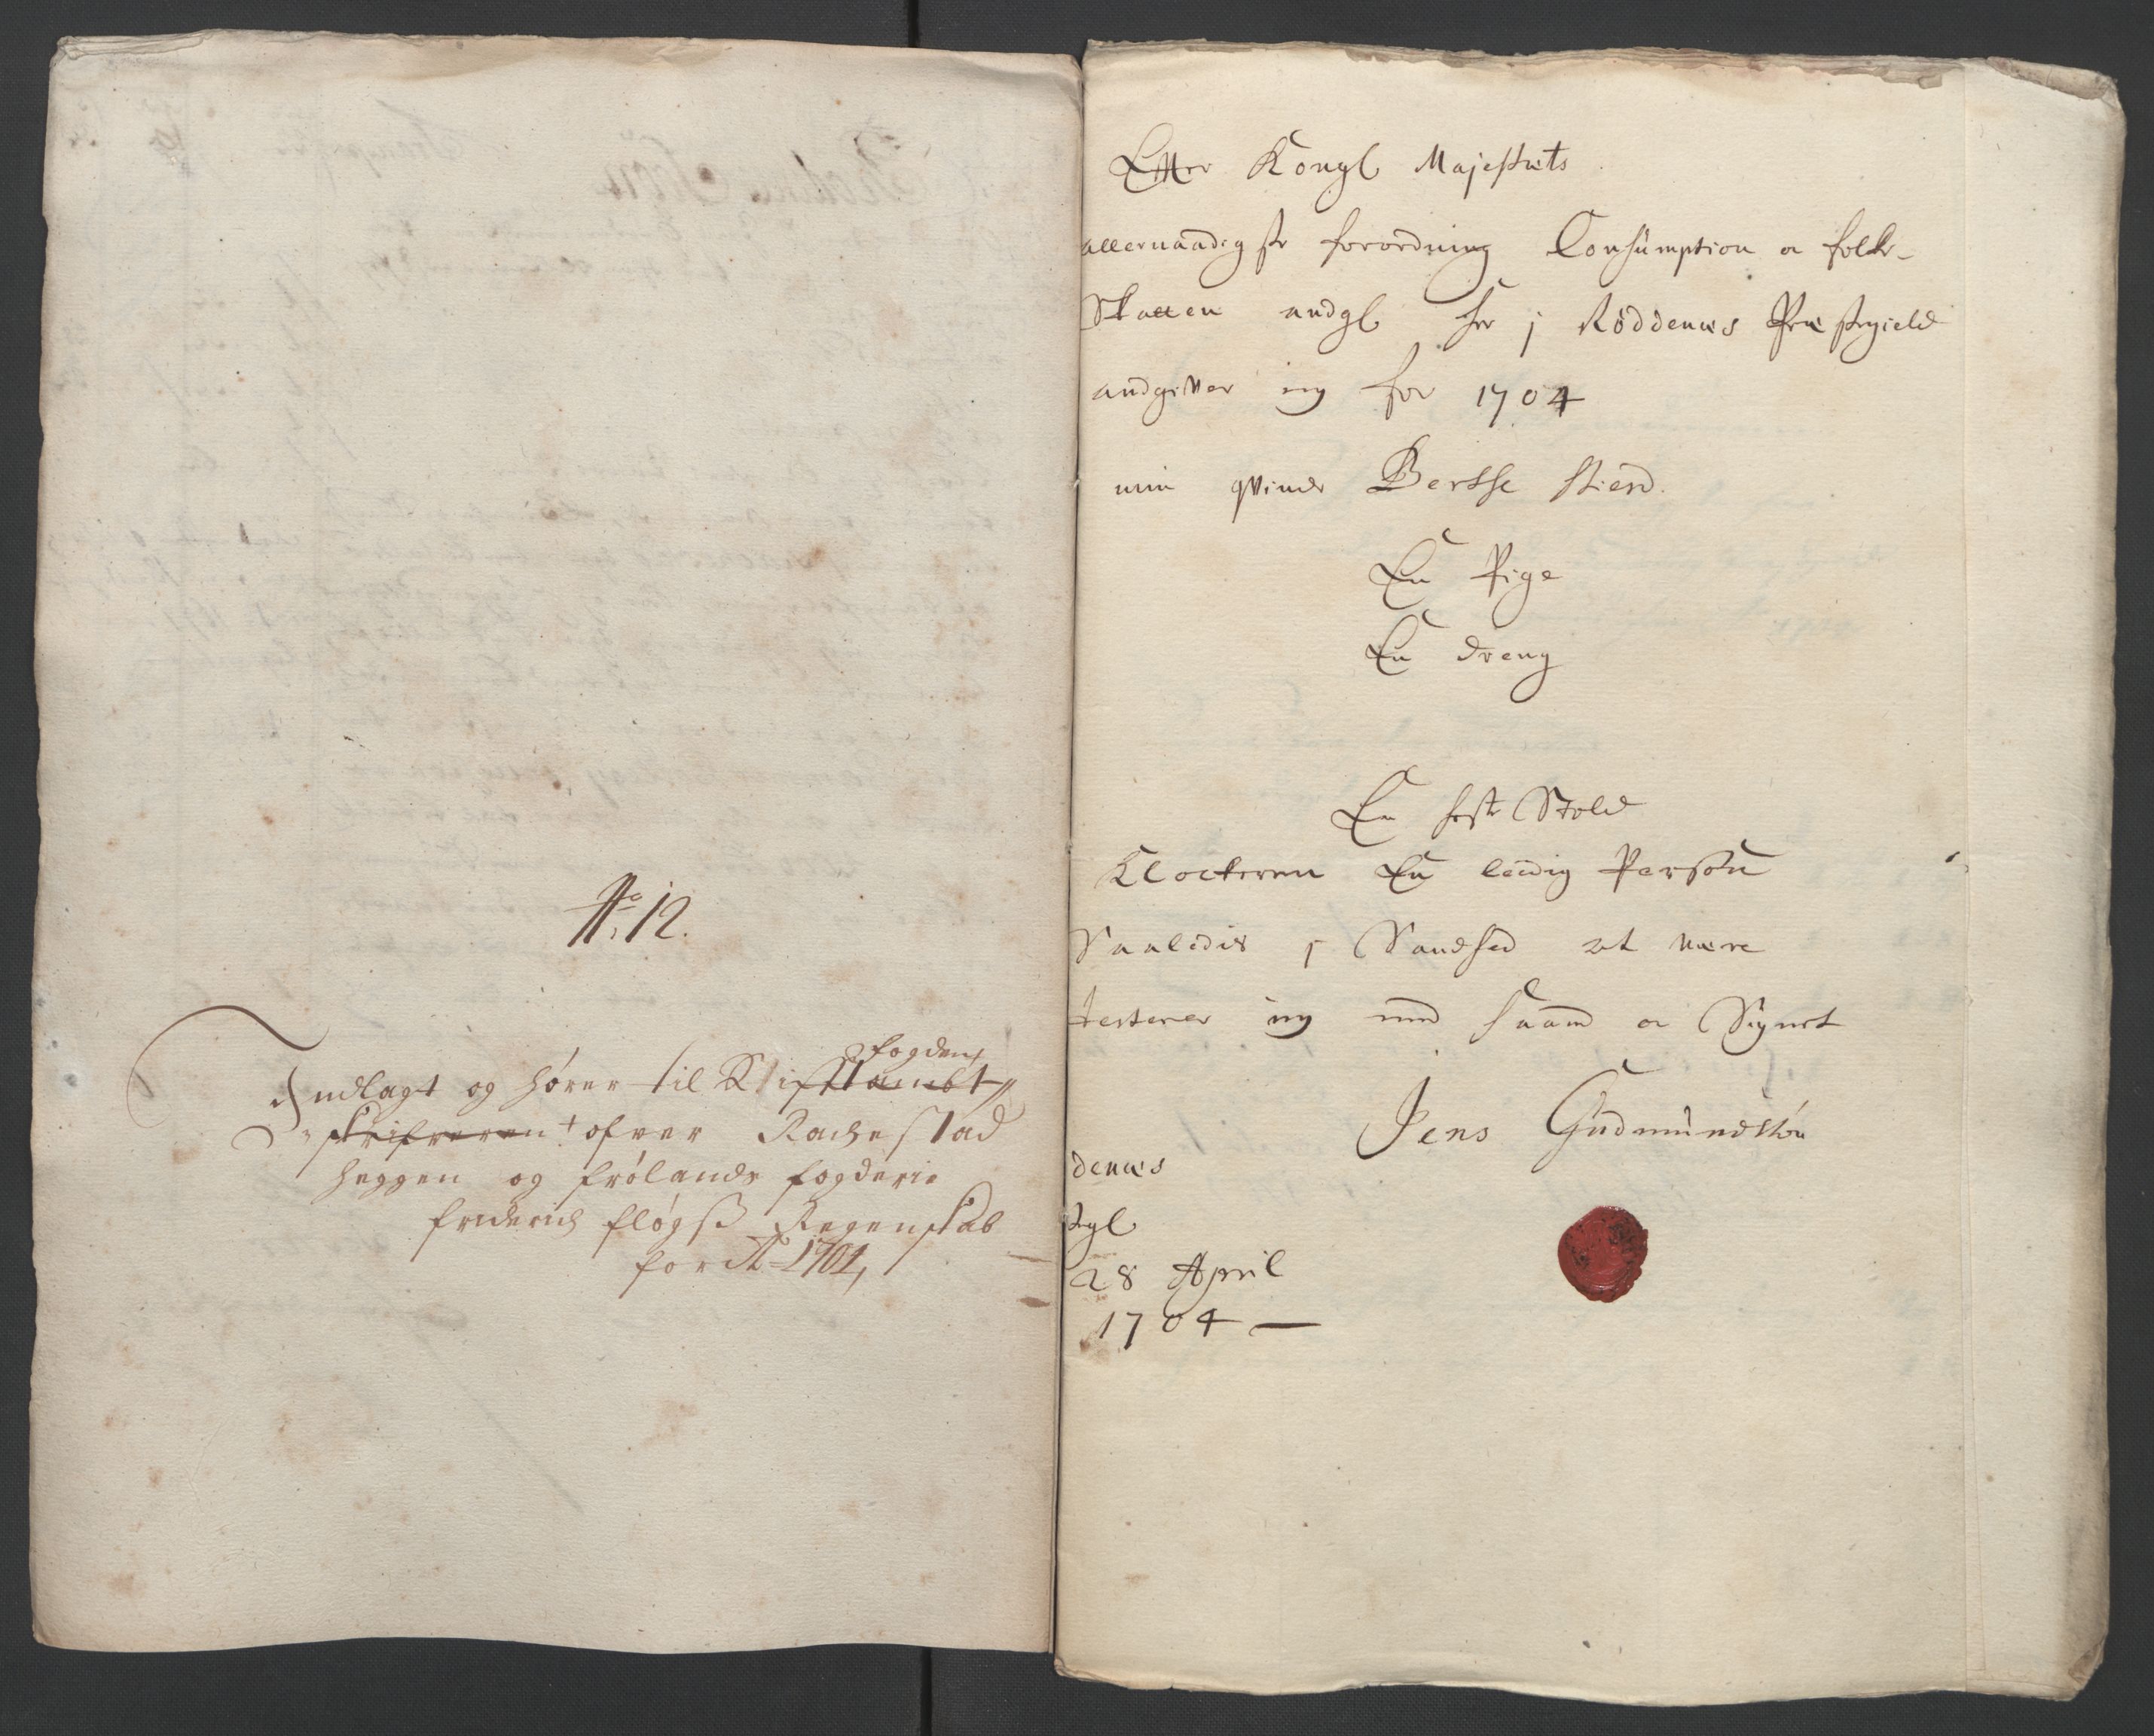 No: 12.
Indlagt og hører til Stifftambt
fogden
skrifveren ofver Rachestad
Heggen og frølands fogderie
friderich fløgß Regenskab
for Ao 1704,
Effter Kongl Majestæts
allernaadigste forordning Consumption oc folke-
Skatten andgl her j Røddenæs Præstegield
andgiffver ieg for 1704
min qvinde Bersse Stiesd.
En Pige
En dreng
En heste Stold
Klockeren En leedig Person
Saaledis j Sandhed at være
testerer ieg med haand oc Signet
Jens Gudmundsøn
denæs
stgl
28 April
1704 —